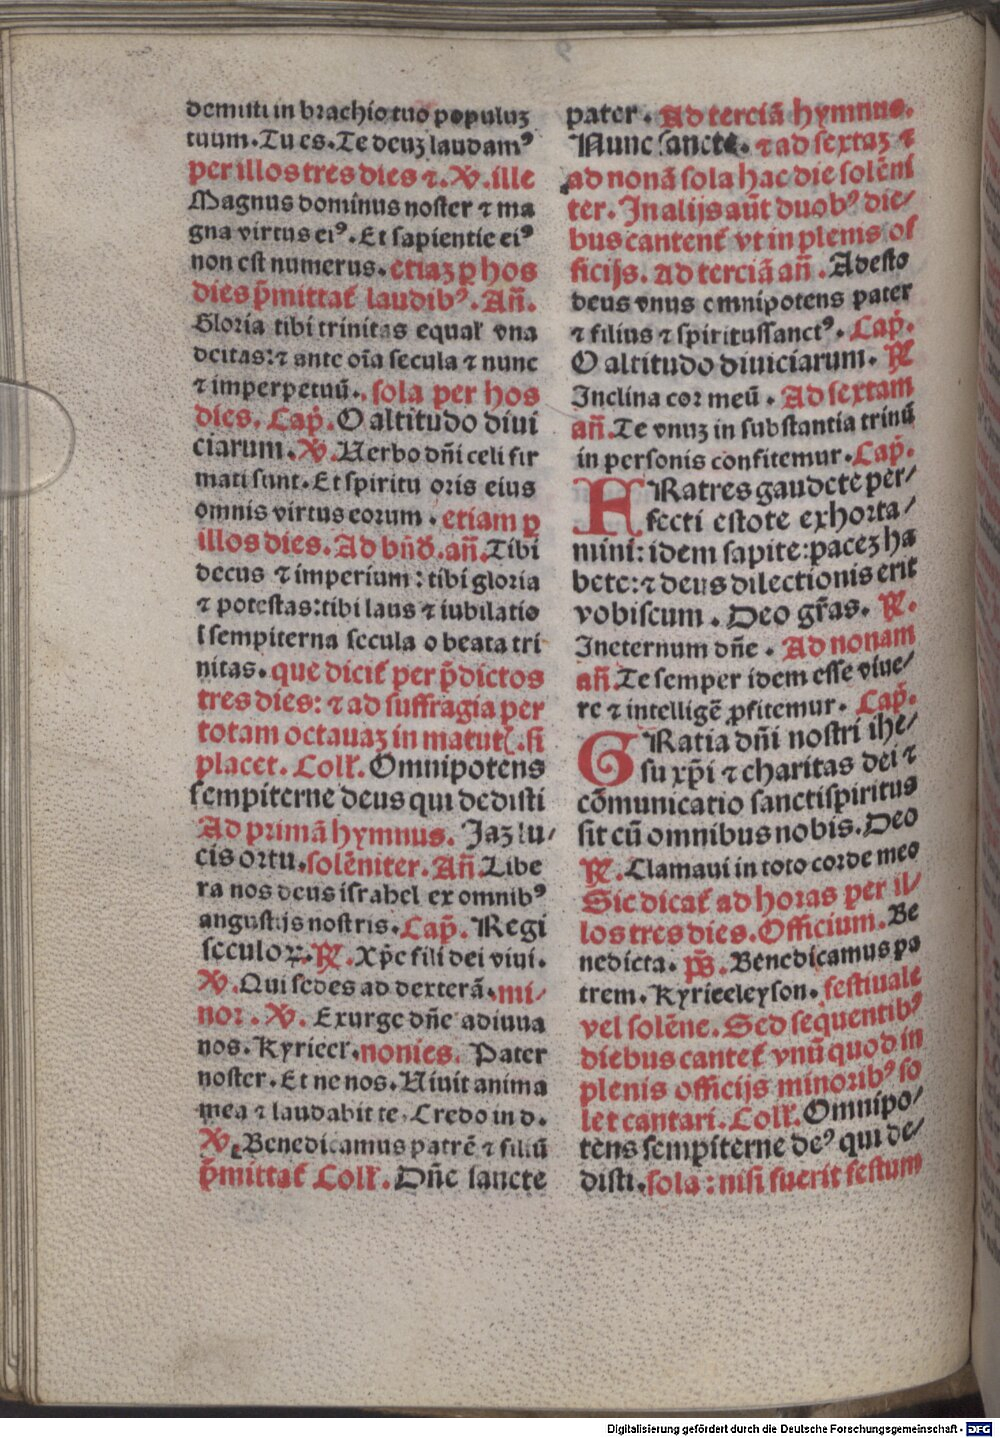 demisti in brachio tuo populuꝫ
tuum. Tu es. Te deuꝫ laudamꝰ
per illos tres dies ⁊. ℣. ille
Magnus dominus noster ⁊ ma
gna virtus eiꝰ. Et sapientie eiꝰ
non est numerus. etiaꝫ ꝑ hos
dies p̄mittat̄ laudibꝰ. Añ.
Gloria tibi trinitas equal' vna
deitas: ⁊ ante oīa secula ⁊ nunc
⁊ imperpetuū. sola per hos
dies. Cap̄. O altitudo diui
ciarum. ℣. Uerbo dñi celi fir
mati sunt. Et spiritu oris eius
omnis virtus eorum. etiam ꝑ
illos dies. Ad bñd̄. añ. Tibi
decus ⁊ imperium: tibi gloria
⁊ potestas: tibi laus ⁊ iubilatio
ī sempiterna secula o beata tri
nitas. que dicit̄ per p̄dictos
tres dies: ⁊ ad suffragia per
totam octauaꝫ in matut̄. si
placet. Coll'. Omnipotens
sempiterne deus qui dedisti
Ad primā hymnus. Jaꝫ lu⸗
cis ortu. solēniter. Añ. Libe
ra nos deus israhel ex omnibꝰ
angustijs nostris. Cap̄. Regi
seculoꝝ. ℟. Xp̄e fili dei viui.
℣. Qui sedes ad dexterā. mi⸗
nor. ℣. Exurge dñe adiuua
nos. Kyrieel'. nonies. Pater
noster. Et ne nos. Uiuit anima
mea ⁊ laudabit te. Credo in d.
℣. Benedicamus patrē ⁊ filiū
p̄mittat̄ Coll'. Dñe sancte
pater. Ad terciā hymnus.
Nunc sancte. ⁊ ad sextaꝫ ⁊
ad nonā sola hac die solēni
ter. In alijs aūt duobꝰ die⸗
bus cantent̄ vt in plenis of
ficijs. Ad terciā añ. Adesto
deus vnus omnipotens pater
⁊ filius ⁊ spiritussanctꝰ. Cap̄.
O altitudo diuiciarum. ℟
Inclina cor meū. Ad sextam
añ. Te vnuꝫ in substantia trinū
in personis confitemur. Cap̄.
FRatres gaudete per⸗
fecti estote exhorta⸗
mini: idem sapite: paceꝫ ha
bete: ⁊ deus dilectionis erit
vobiscum. Deo gr̄as. ℟.
Ineternum dñe. Ad nonam
añ. Te semper idem esse viue⸗
re ⁊ intelligē ꝓfitemur. Cap̄.
GRatia dñi nostri ihe⸗
su xp̄i ⁊ charitas dei ⁊
cōmunicatio sanctispiritus
sit cū omnibus nobis. Deo
℟. Clamaui in toto corde meo
Sic dicat̄ ad horas per il⸗
los tres dies. Officium. Be
nedicta. p̄s̄. Benedicamus pa
trem. Kyrieeleyson. festiuale
vel solēne. Sed sequentibꝰ
diebus cantet̄ vnū quod in
plenis officijs minoribꝰ so
let cantari. Coll'. Omnipo⸗
tens sempiterne deꝰ qui de⸗
disti. sola: nisi fuerit festum
Digitalisierung gefördert durch die Deutsche Forschungsgemeinschaft - DFG